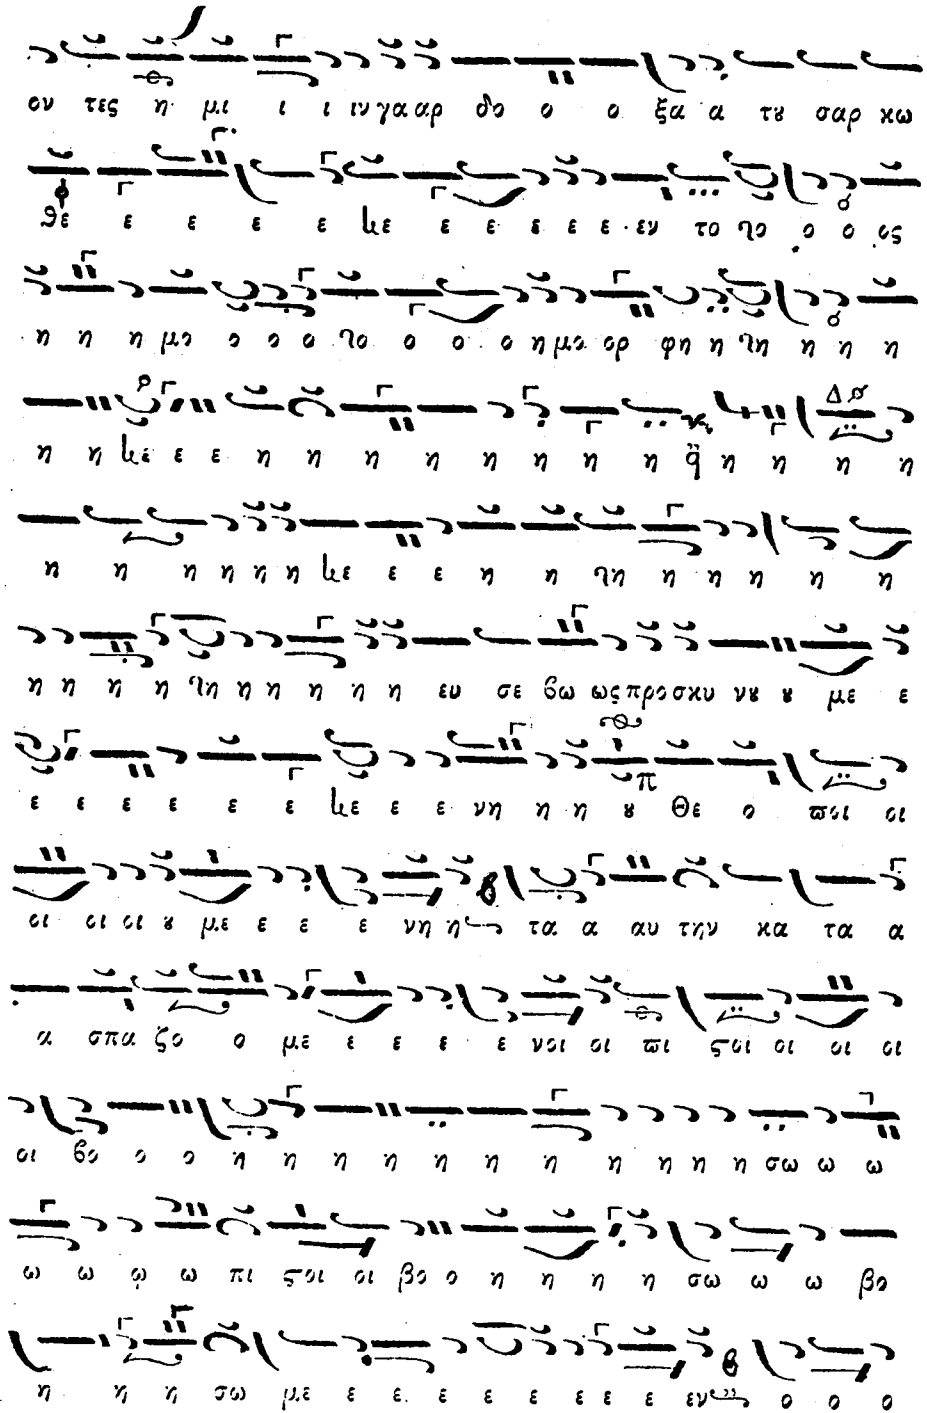 ον τες η μι ι ι ιν γα αρ δο ο ο ξα α τȣ σαρ κω
θε ε ε ε ε κε ε ε ε ε ε εν το το ο ο ος
η η η μο ο ο ο το ο ο ο η μο ορ φη η τη η η η
η η κε ε ε η η η η η η η η η η η η
η η η η η η κε ε ε η η τη η η η η η
η η η η τη η η η η η ευ σε βω ως προ σκυ νȣ ȣ με ε
ε ε ε ε ε ε κε ε ε νη η η ȣ Θε ο ϖοι οι
οι οι οι ȣ με ε ε ε νη η τα α αυ την κα τα α
α σπα ζο ο με ε ε ε ε νοι οι ϖι ϛοι οι οι οι
οι βο ο ο η η η η η η η η η η η σω ω ω
ω ω ω ω πι ϛοι οι βο ο η η η η σω ω ω βο
η η η σω με ε ε ε ε ε ε ε ε εν ο ο ο